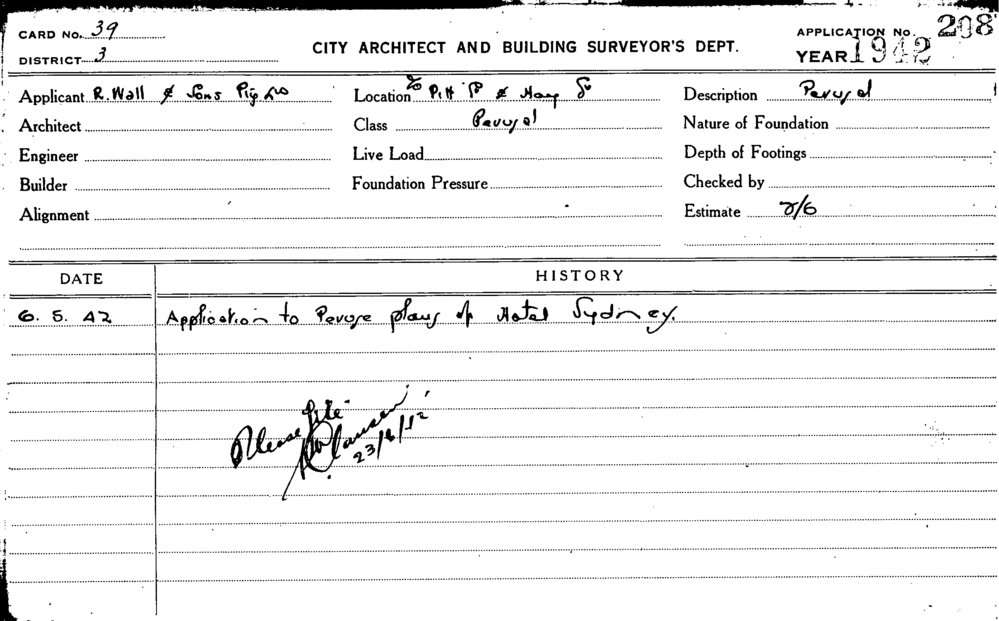 CARD No. 39
DISTRICT 3
CITY ARCHITECT AND BUILDING SURVEYOR'S DEPT.
APPLICATION No. 208
YEAR 1942
Applicant R. Wall & Sons
Location Pitt St & Hay St
Description Perusal
Architect
Class Perusal
Nature of Foundation
Engineer
Live Load
Depth of Footings
Builder
Foundation Pressure
Checked by
Alignment
Estimate 2/6
DATE HISTORY
6. 5. 42 Application to Peruse plans of Hotel Sydney.
Please file